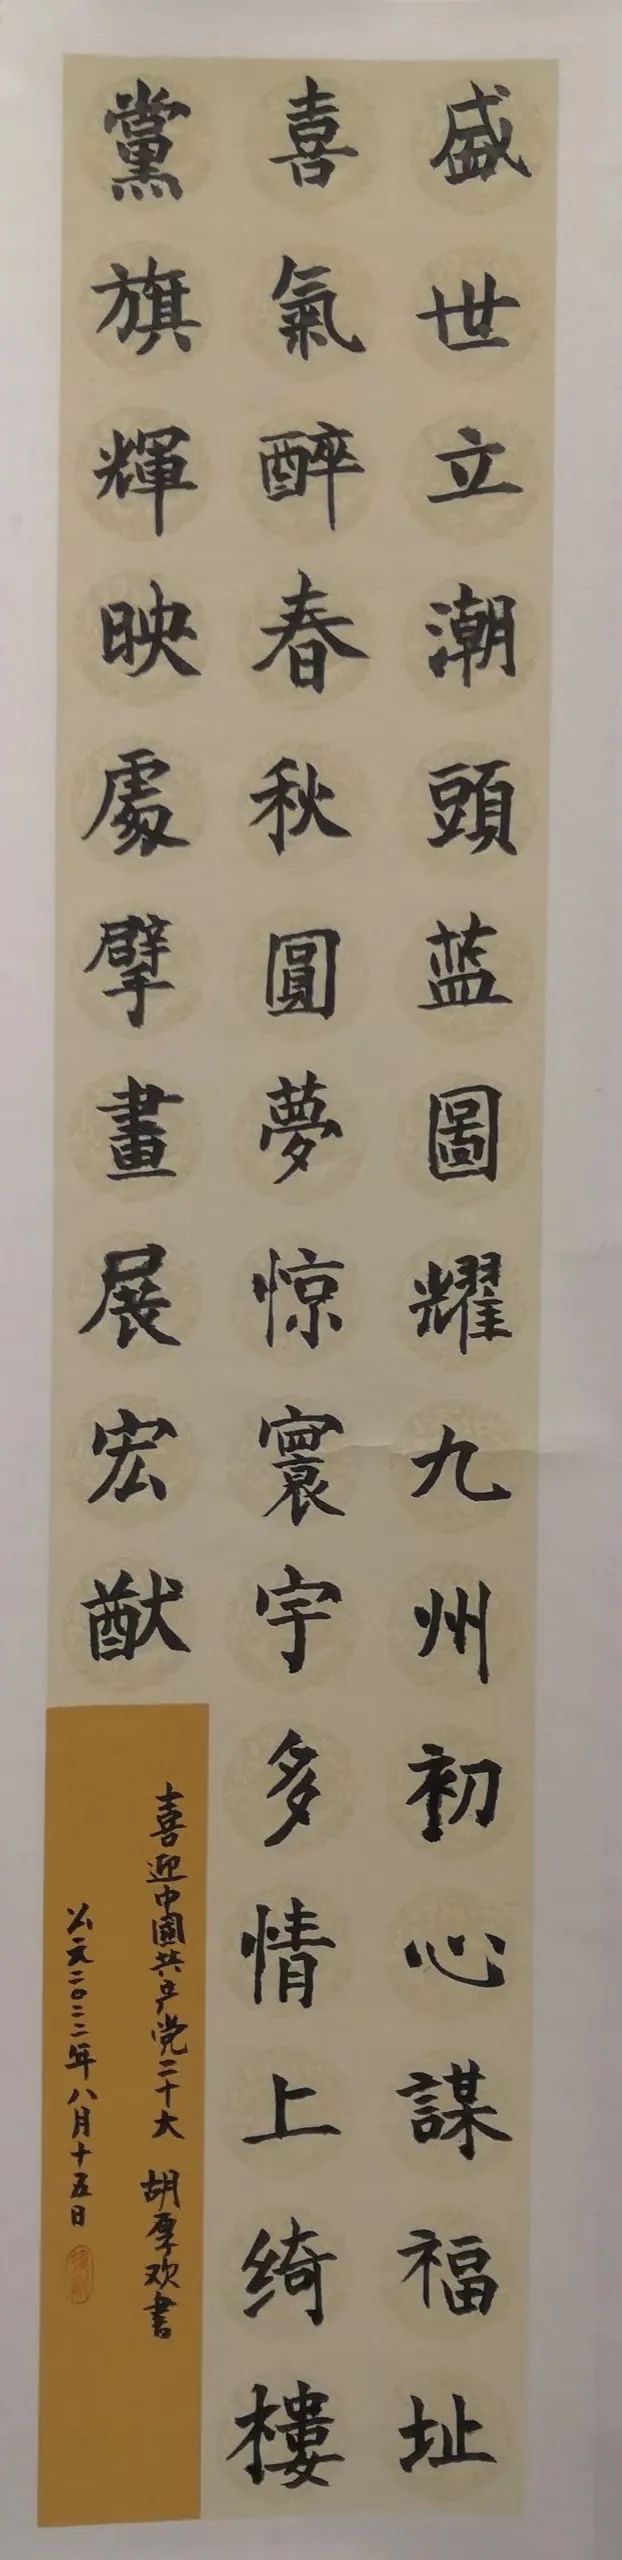 盛世立潮頭蓝圖耀九州初心謀福址
喜氣醉春秋圓夢惊寰宇多情上绮樓
黨旗輝映處擘畫展宏猷
喜迎中國共产党二十大 胡厚欢書
公元二〇二二年八月十五日